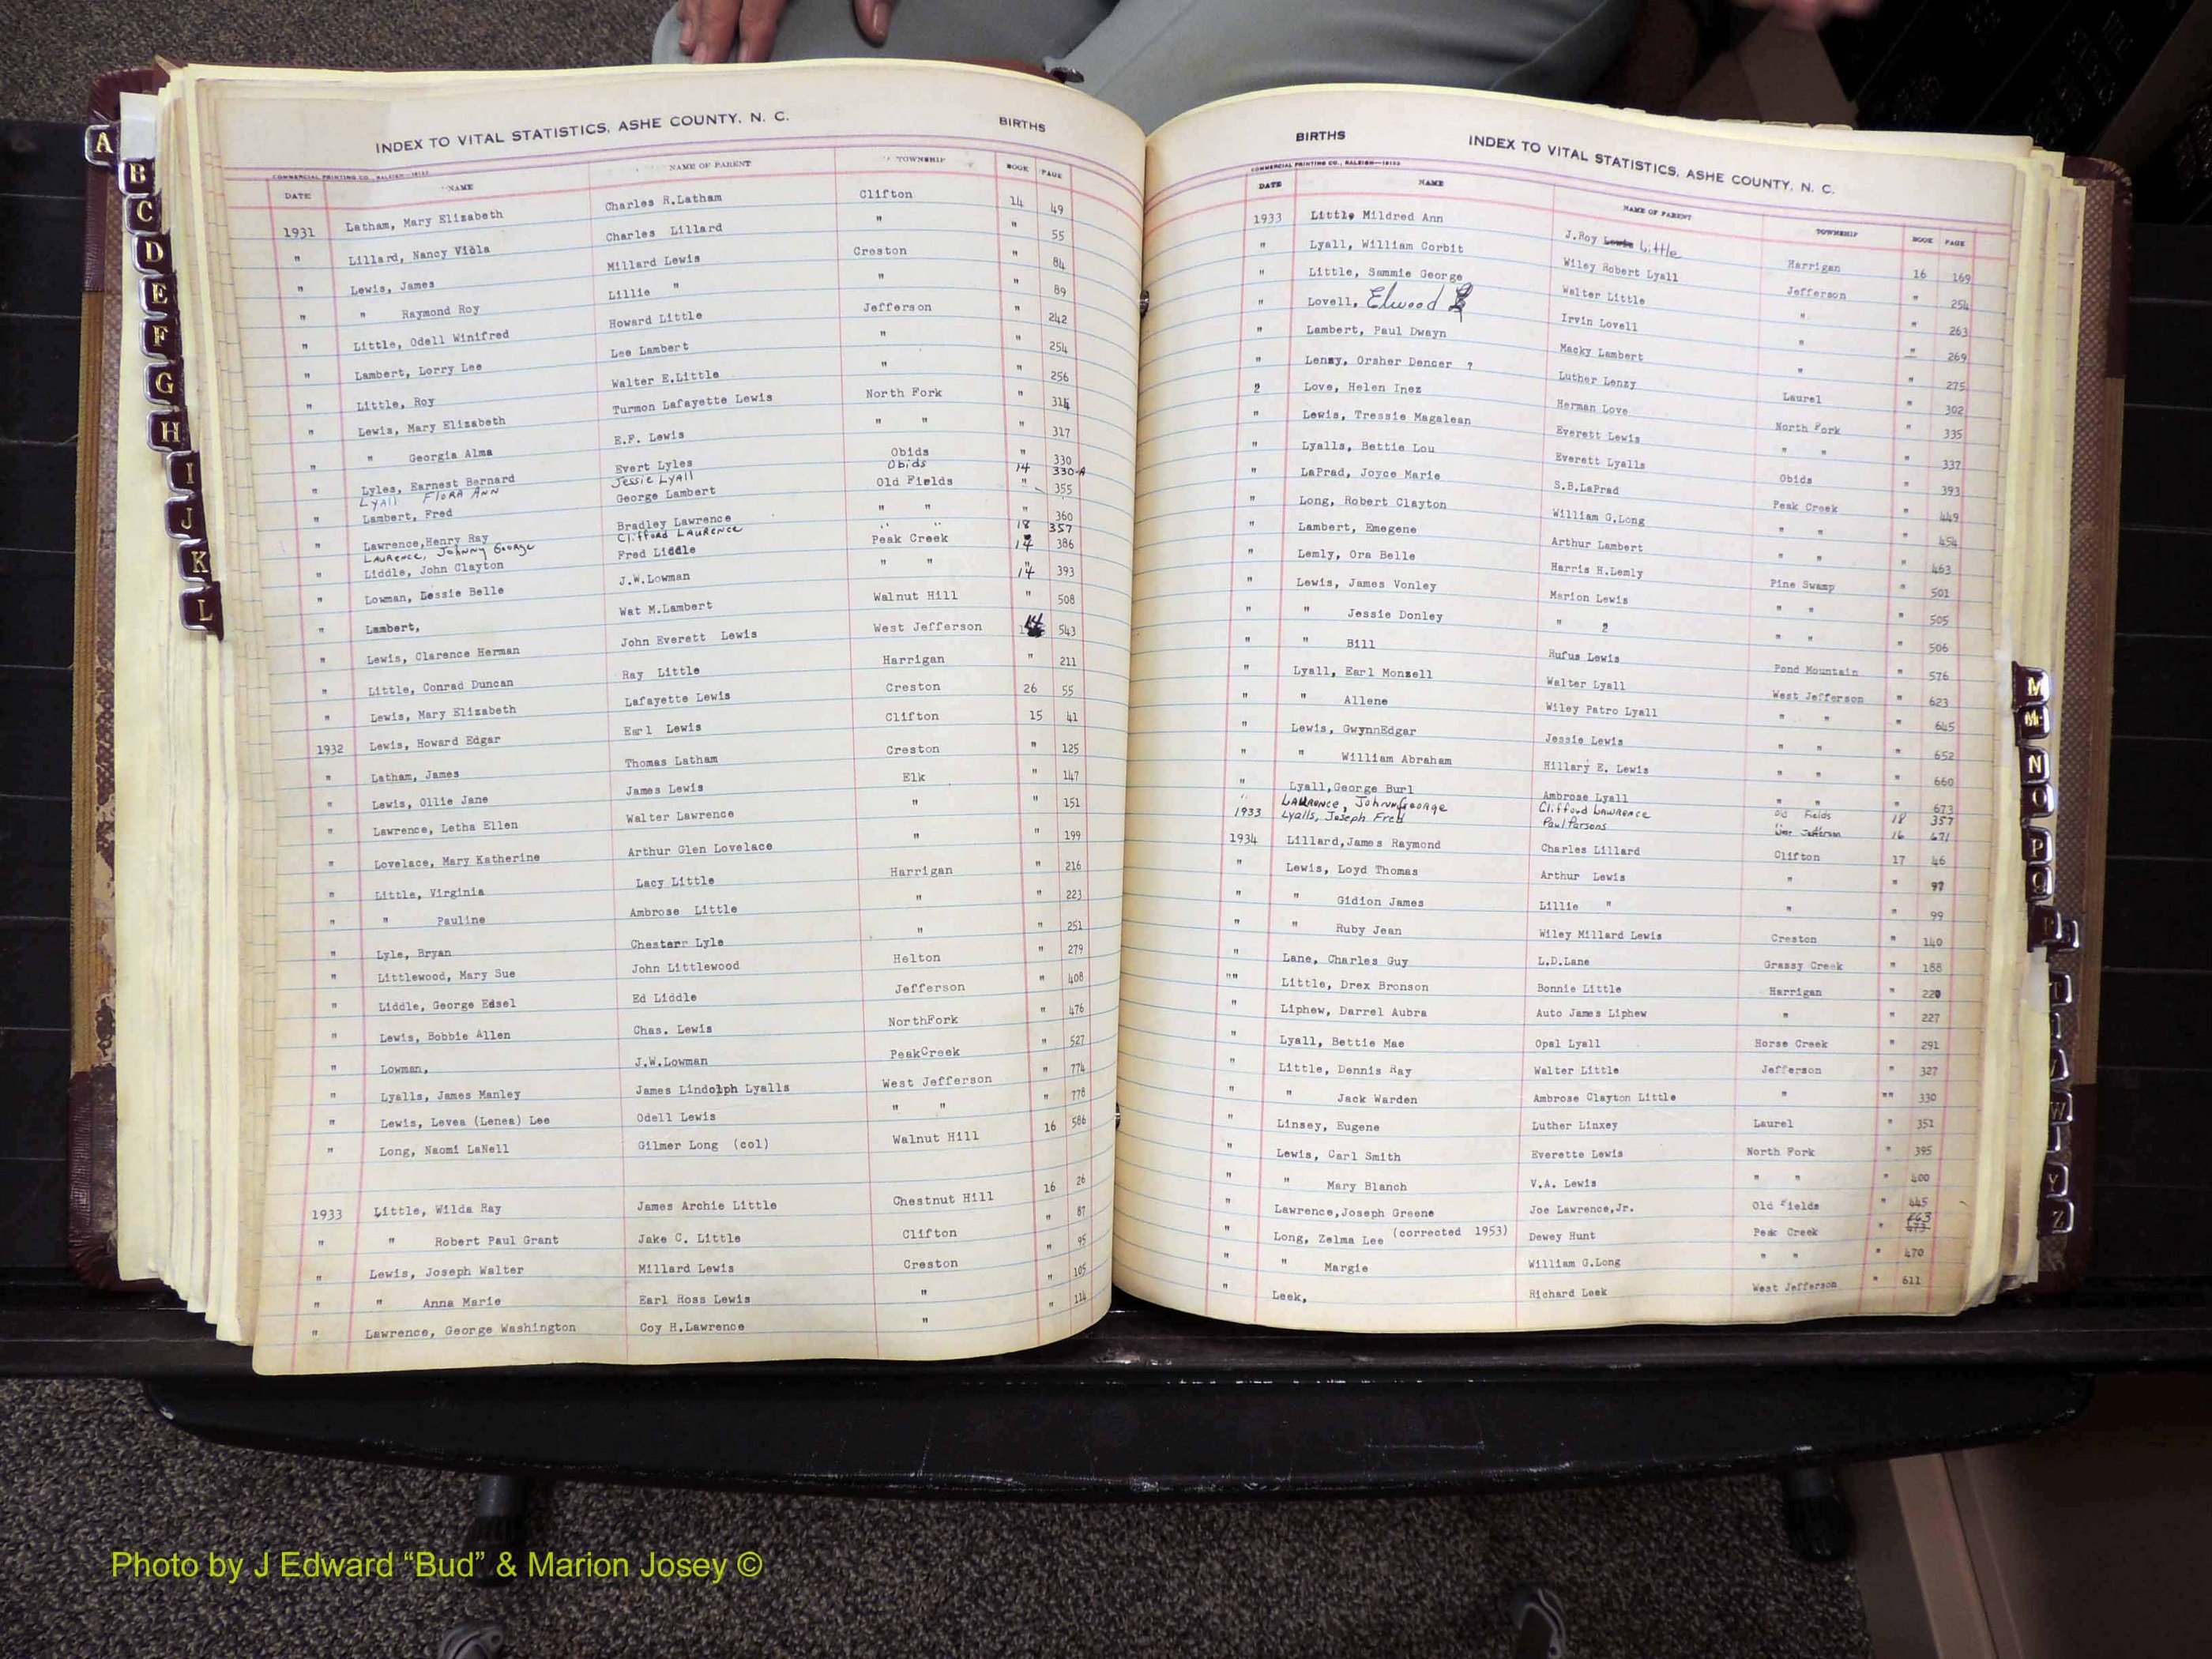 INDEX TO VITAL STATISTICS, ASHE COUNTY, N. C. BIRTHS
COMMERCIAL PRINTING CO., RALEIGH—18133
DATE NAME NAME OF PARENT TOWNSHIP BOOK PAGE
1931 Latham, Mary Elizabeth Charles R.Latham Clifton 14 49
" Lillard, Nancy Viola Charles Lillard " " 55
" Lewis, James Millard Lewis Creston " 84
" " Raymond Roy Lillie " " " 89
" Little, Odell Winifred Howard Little Jefferson " 242
" Lambert, Lorry Lee Lee Lambert " " 254
" Little, Roy Walter E.Little " " 256
" Lewis, Mary Elizabeth Turmon Lafayette Lewis North Fork " 314
" " Georgia Alma E.F. Lewis " " " 317
" Lyles, Earnest Bernard Evert Lyles Obids " 330
LYALL FLORA ANN Jessie LYALL Obids 14 330-A
" Lambert, Fred George Lambert Old Fields " 355
" Lawrence,Henry Ray Bradley Lawrence " " " 360
LAURENCE, JOHNNY GEORGE Clifford LAURENCE " " 18 357
" Liddle, John Clayton Fred Liddle Peak Creek 14 386
" Lowman, Dessie Belle J.W.Lowman " " 14 393
" Lambert, Wat M.Lambert Walnut Hill " 508
" Lewis, Clarence Herman John Everett Lewis West Jefferson 14 543
" Little, Conrad Duncan Ray Little Harrigan " 211
" Lewis, Mary Elizabeth Lafayette Lewis Creston 26 55
1932 Lewis, Howard Edgar Earl Lewis Clifton 15 41
" Latham, James Thomas Latham Creston " 125
" Lewis, Ollie Jane James Lewis Elk " 147
" Lawrence, Letha Ellen Walter Lawrence " " 151
" Lovelace, Mary Katherine Arthur Glen Lovelace " " 199
" Little, Virginia Lacy Little Harrigan " 216
" " Pauline Ambrose Little " " 223
" Lyle, Bryan Chesterr Lyle " " 251
" Littlewood, Mary Sue John Littlewood Helton " 279
" Liddle, George Edsel Ed Liddle Jefferson " 408
" Lewis, Bobbie Allen Chas. Lewis NorthFork " 476
" Lowman, J.W.Lowman PeakCreek " 527
" Lyalls, James Manley James Lindolph Lyalls West Jefferson " 774
" Lewis, Levea (Lenea) Lee Odell Lewis " " " 778
" Long, Naomi LaNell Gilmer Long (col) Walnut Hill 16 586
1933 Little, Wilda Ray James Archie Little Chestnut Hill 16 26
" " Robert Paul Grant Jake C. Little Clifton " 87
" Lewis, Joseph Walter Millard Lewis Creston " 95
" " Anna Marie Earl Ross Lewis " " 105
" Lawrence, George Washington Coy H.Lawrence " " 114
BIRTHS INDEX TO VITAL STATISTICS, ASHE COUNTY, N. C.
COMMERCIAL PRINTING CO., RALEIGH—18133
DATE NAME NAME OF PARENT TOWNSHIP BOOK PAGE
1933 Little Mildred Ann J.Roy Lewis Little Harrigan 16 169
" Lyall, William Corbit Wiley Robert Lyall Jefferson " 254
" Little, Sammie George Walter Little " " 263
" Lovell, Elwood Irvin Lovell " " 269
" Lambert, Paul Dwayn Macky Lambert " " 275
" Lenzy, Orsher Dencer ? Luther Lenzy Laurel " 302
2 Love, Helen Inez Herman Love North Fork " 335
" Lewis, Tressie Magalean Everett Lewis " " " 337
" Lyalls, Bettie Lou Everett Lyalls Obids " 393
" LaPrad, Joyce Marie S.B.LaPrad Peak Creek " 449
" Long, Robert Clayton William G.Long " " " 454
" Lambert, Emegene Arthur Lambert " " " 463
" Lemly, Ora Belle Harris H.Lemly Pine Swamp " 501
" Lewis, James Vonley Marion Lewis " " " 505
" " Jessie Donley " 2 " " " 506
" " Bill Rufus Lewis Pond Mountain " 576
" Lyall, Earl Monzell Walter Lyall West Jefferson " 623
" " Allene Wiley Patro Lyall " " " 645
" Lewis, GwynnEdgar Jessie Lewis " " " 652
" " William Abraham Hillary E. Lewis " " " 660
" Lyall,George Burl Ambrose Lyall " " " 673
" LAWRENCE, JOHNNY GEORGE Clifford LAWRENCE Old Fields 18 357
1933 Lyalls, Joseph Fred Paul Parsons West Jefferson 16 671
1934 Lillard,James Raymond Charles Lillard Clifton 17 46
" Lewis, Loyd Thomas Arthur Lewis " " 97
" " Gidion James Lillie " " " 99
" " Ruby Jean Wiley Millard Lewis Creston " 140
" Lane, Charles Guy L.D.Lane Grassy Creek " 188
"" Little, Drex Bronson Bonnie Little Harrigan " 220
" Liphew, Darrel Aubra Auto James Liphew " " 227
" Lyall, Bettie Mae Opal Lyall Horse Creek " 291
" Little, Dennis Ray Walter Little Jefferson " 327
" " Jack Warden Ambrose Clayton Little " "" 330
" Linsey, Eugene Luther Linxey Laurel " 351
" Lewis, Carl Smith Everette Lewis North Fork " 395
" " Mary Blanch V.A. Lewis " " " 400
" Lawrence,Joseph Greene Joe Lawrence,Jr. Old Fields " 445
" Long, Zelma Lee (corrected 1953) Dewey Hunt Peak Creek "
" " Margie William G.Long " " " 470
" Leek, Richard Leek West Jefferson " 611
A
B
C
D
E
F
G
H
I
J
K
L
M
Mc
N
O
P
Q
R
T
W
Y
Z
Photo by J Edward “Bud” & Marion Josey ©